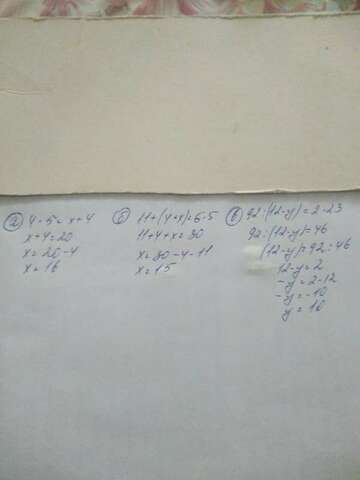 а) 4·5=x+4
x+4=20
x=20-4
x=16
б) 11+(4+x)=6·5
11+4+x=30
x=30-4-11
x=15
в) 92:(12-y)=2·23
92:(12-y)=46
(12-y)=92:46
12-y=2
-y=2-12
-y=-10
y=10